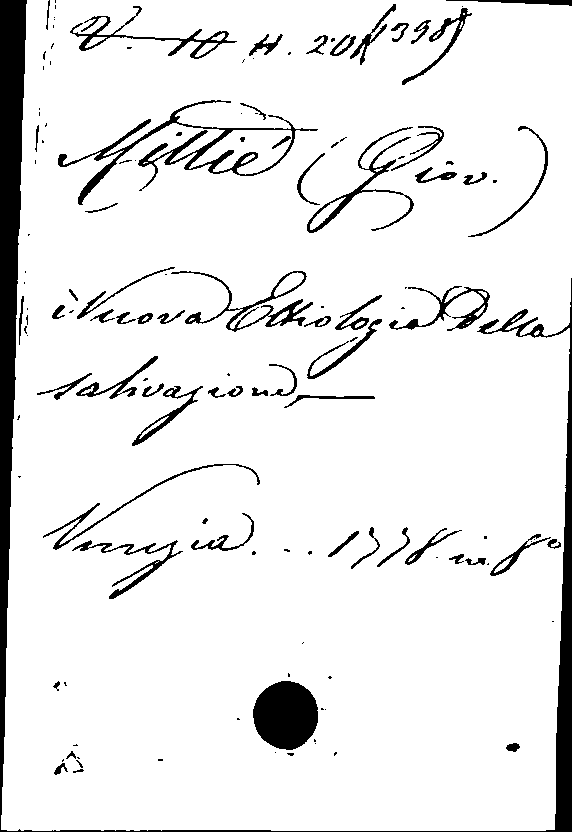 V. 10 H. 201(398)
Mittié (Giov.)
Nuova Ettiologia Della
salivazione,—
Venezia... 1778 in 8°